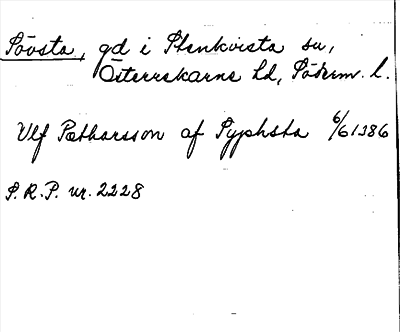 Sävsta, gd i Stenkvista sn,
Österrekarne hd, Söderm. l.
Ulf Pætharsson af Syphsta 6/6 1386
S.R.P. nr. 2228